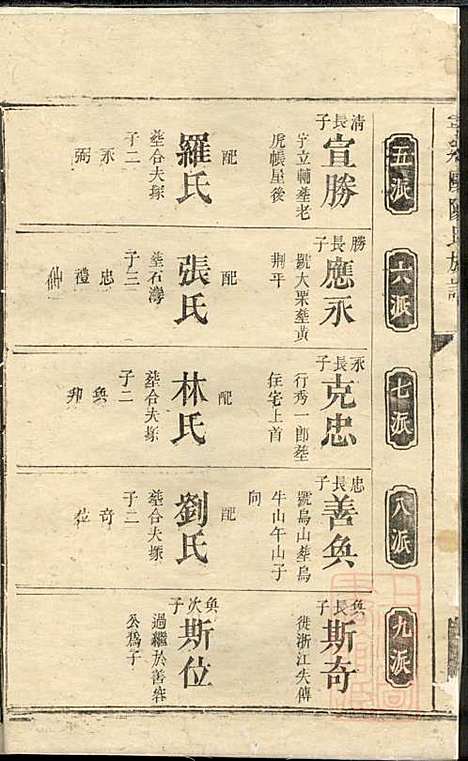 五派
清長子
宣勝
字立輔塟老
虎帳屋後
配
羅氏
塟合夫塚
子二
永
弼
六派
勝長子
應永
號大栗塟黃
荆平
配
張氏
塟石灣
子三
忠
禮
仙
七派
永長子
克忠
行秀一郎塟
住宅上首
配
林氏
塟合夫塚
子二
奐
邦
八派
忠長子
善奐
號烏山塟烏
牛山午山子
向
配
劉氏
塟合夫塚
子二
奇
位
九派
奐長子
斯奇
徙浙江失傳
奐次子
斯位
過繼於善
公為子